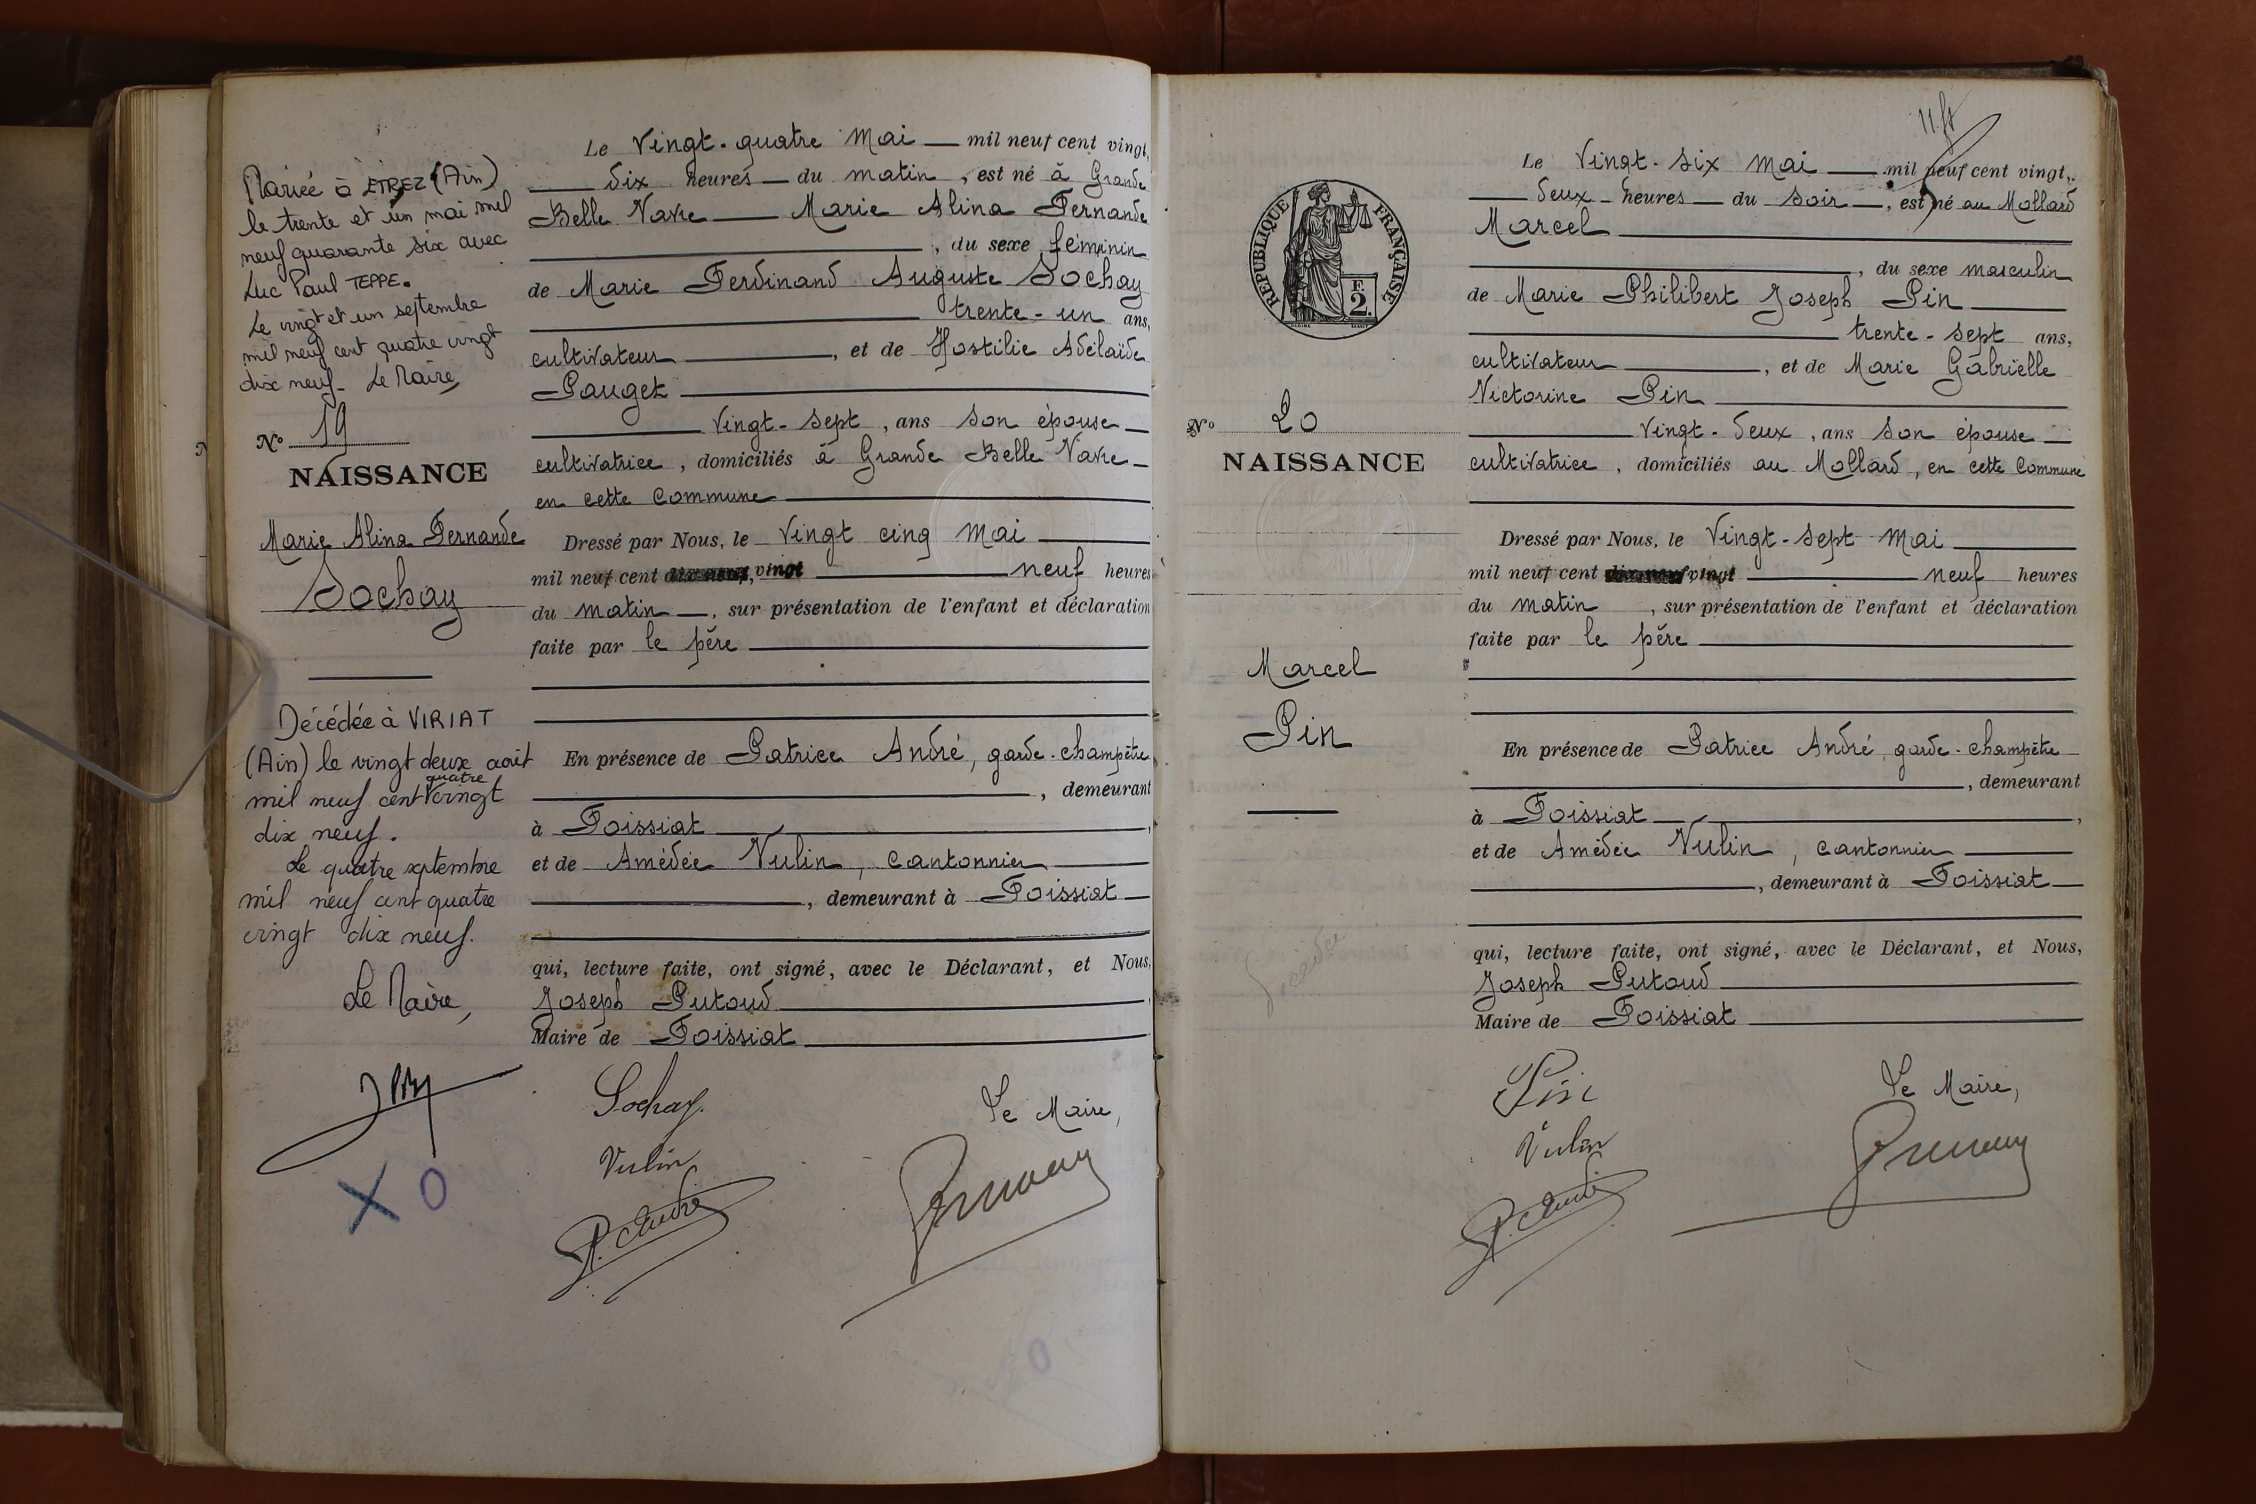 Mariée à ETREZ (Ain)
le trente et un mai mil
neuf quarante six avec
Luc Paul TEPPE.
Le vingt et un septembre
mil neuf cent quatre vingt
dix neuf - Le Maire,
N° 19
NAISSANCE
Marie Alina Fernande
Sochay
Décédée à VIRIAT
(Ain) le vingt deux août
mil neuf cent quatre vingt
dix neuf.
Le quatre septembre
mil neuf cent quatre
vingt dix neuf.
Le Maire,
X O
Le Vingt-quatre Mai mil neuf cent vingt,
dix heures du matin, est né à Grande
Belle Vavre Marie Alina Fernande
, du sexe féminin
de Marie Ferdinand Auguste Sochay
trente-un ans,
cultivateur, et de Hostilie Adélaïde
Pauget
Vingt-sept, ans son épouse
cultivatrice, domiciliés à Grande Belle Vavre
en cette Commune
Dressé par Nous, le Vingt cinq Mai
mil neuf cent dix-neuf, vingt neuf heures
du matin, sur présentation de l'enfant et déclaration
faite par le père
En présence de Patrice André, garde-champêtre
, demeurant
à Foissiat,
et de Amédée Vulin, cantonnier
, demeurant à Foissiat
qui, lecture faite, ont signé, avec le Déclarant, et Nous,
Joseph Putoud,
Maire de Foissiat
Sochay.
Le Maire,
Vulin
P. André
RÉPUBLIQUE FRANÇAISE
F.
2.
N° 20
NAISSANCE
Marcel
Pin
Le Vingt-six Mai mil neuf cent vingt,
deux heures du soir, est né au Mollard
Marcel
, du sexe masculin
de Marie Philibert Joseph Pin
trente-sept ans,
cultivateur, et de Marie Gabrielle
Victorine Pin
Vingt-deux, ans son épouse
cultivatrice, domiciliés au Mollard, en cette Commune
Dressé par Nous, le Vingt-sept Mai
mil neuf cent dix-neuf vingt neuf heures
du matin, sur présentation de l'enfant et déclaration
faite par le père
En présence de Patrice André, garde-champêtre
, demeurant
à Foissiat,
et de Amédée Vulin, cantonnier
, demeurant à Foissiat
qui, lecture faite, ont signé, avec le Déclarant, et Nous,
Joseph Putoud
Maire de Foissiat
Pin
Le Maire,
Vulin
P. André